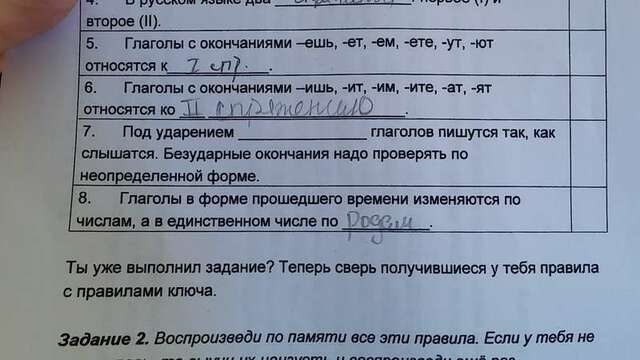 4. В русском языке два спряжения: первое (I) и
второе (II).
5. Глаголы с окончаниями –ешь, -ет, -ем, -ете, -ут, -ют
относятся к I спр.
6. Глаголы с окончаниями –ишь, -ит, -им, -ите, -ат, -ят
относятся ко II спряжению.
7. Под ударением ______________ глаголов пишутся так, как
слышатся. Безударные окончания надо проверять по
неопределенной форме.
8. Глаголы в форме прошедшего времени изменяются по
числам, а в единственном числе по родам.
Ты уже выполнил задание? Теперь сверь получившиеся у тебя правила
с правилами ключа.
Задание 2. Воспроизведи по памяти все эти правила. Если у тебя не